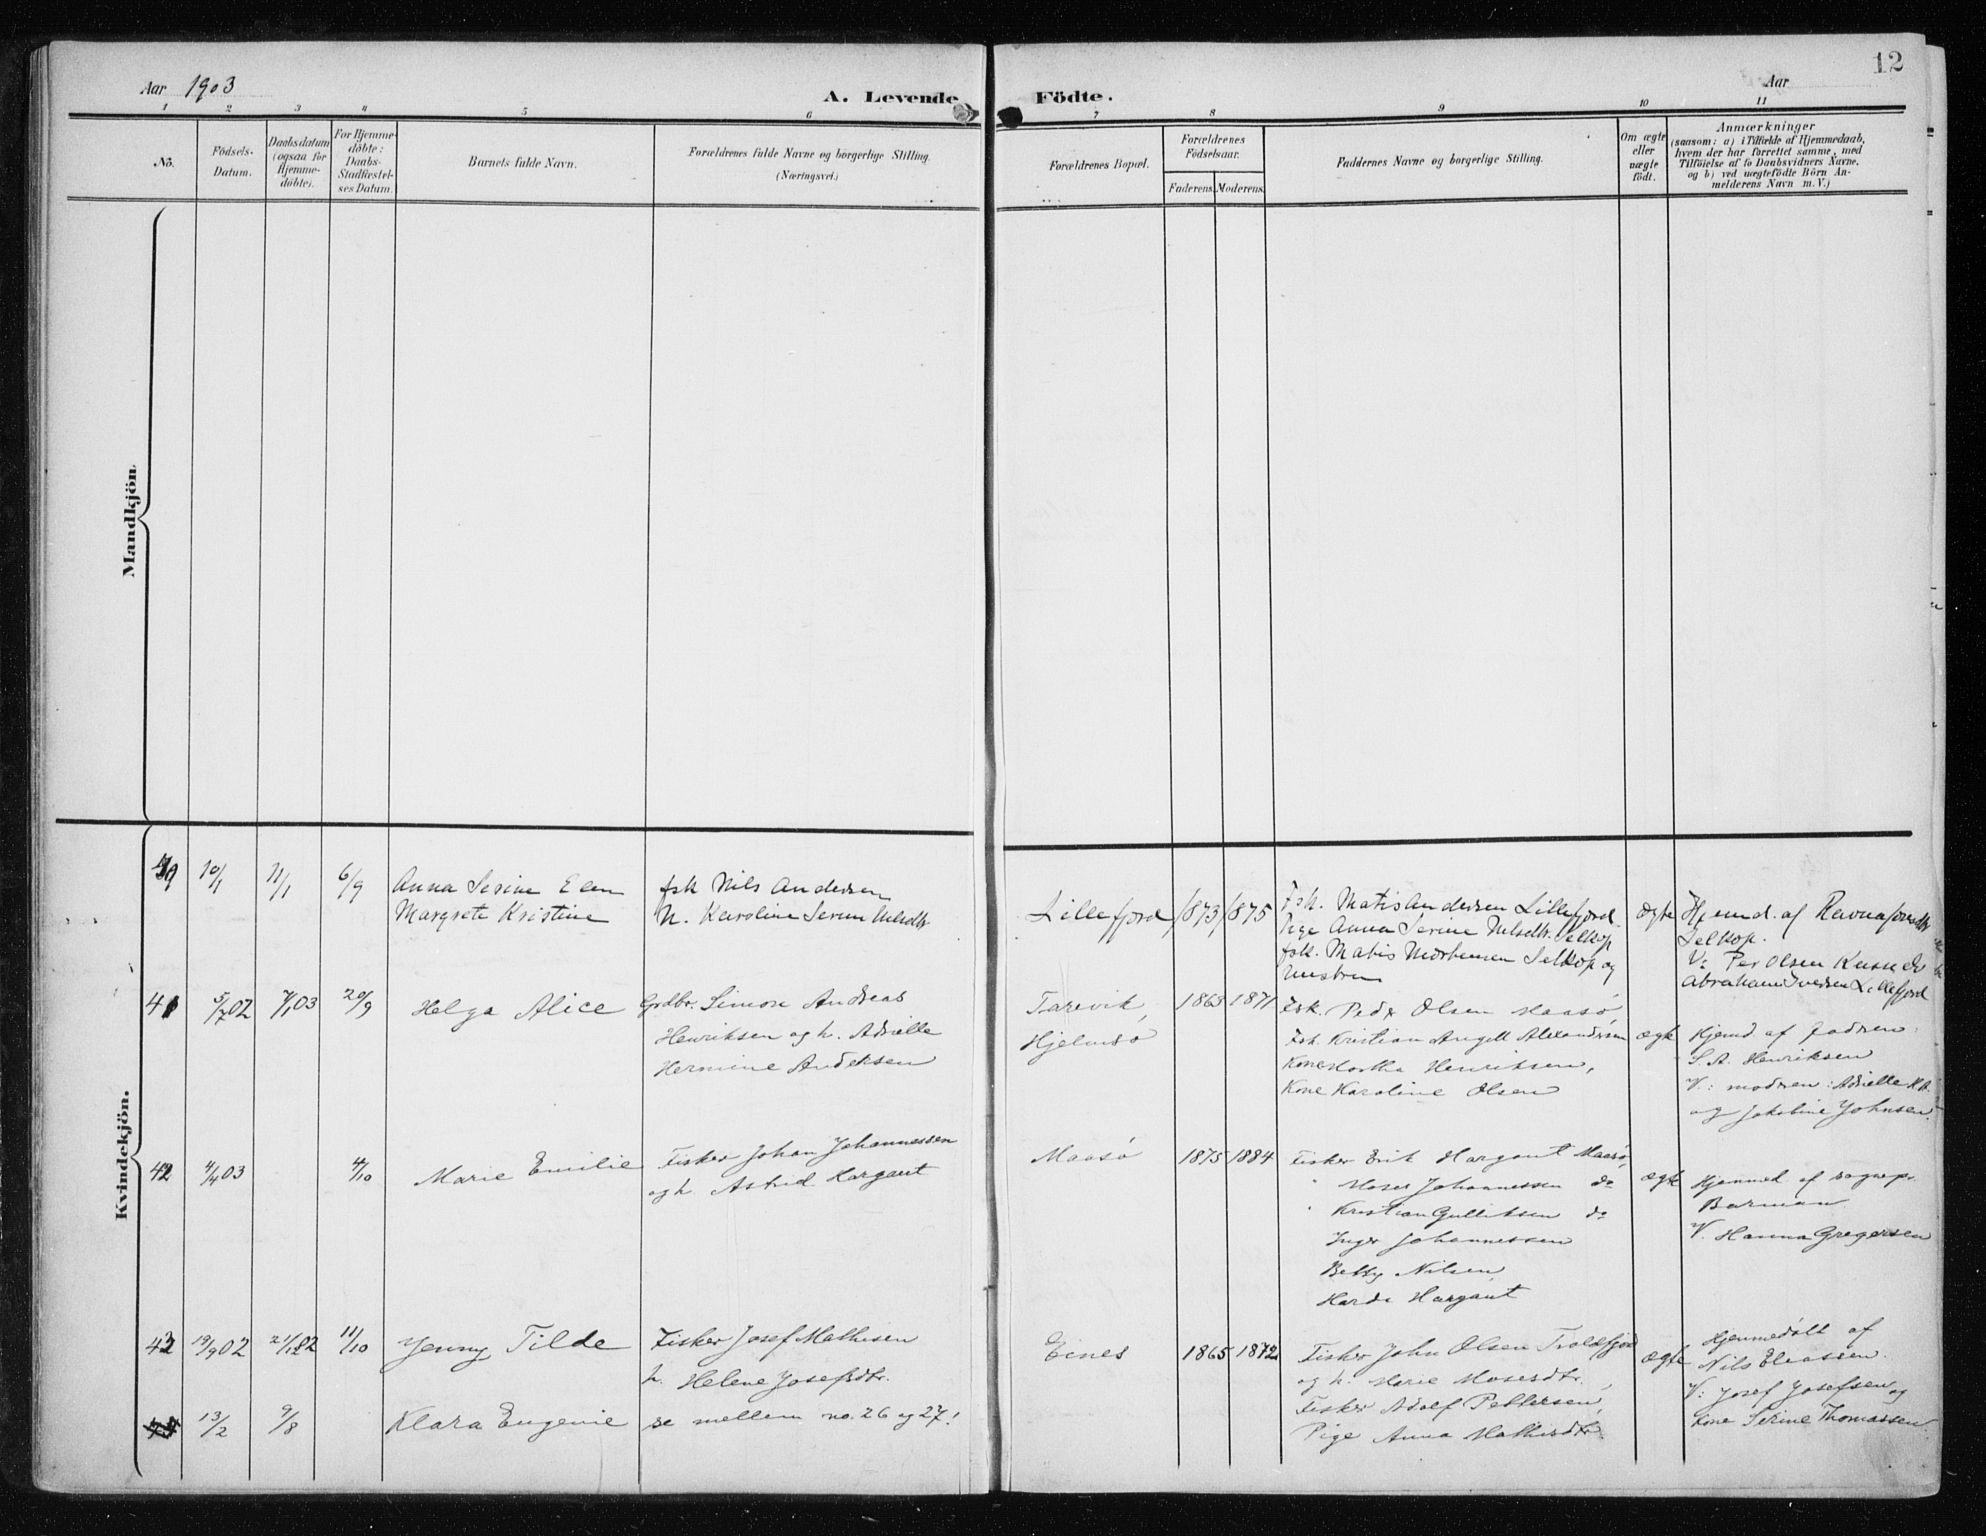 12
Aar 1903
A. Levende Födte.
Aar
1 2 3 4 5 6 7 8 9 10 11
No.
Födsels-
Datum.
Daabsdatum
(ogsaa for
Hjemme-
döbte).
For Hjemme-
döbte:
Daabs-
Stadfæstel-
ses Datum.
Barnets fulde Navn.
Forældrenes fulde Navne og borgerlige Stilling.
(Næringsvei.)
Forældrenes Bopæl.
Forældrenes
Födselsaar.
Faderens. Moderens.
Faddernes Navne og borgerlige Stilling.
Om ægte
eller
uægte
födt.
Anmærkninger
(saasom: a) i Tilfælde af Hjemmedaab,
hvem der har forrettet samme, med
Tilföielse af to Daabsvidners Navne,
og b) ved uægtefödte Börn An-
melderens Navn m. V.)
Mandkjön.
Kvindekjön.
10/1 11/1 6/9
Anna Serine Elen
Margrete Kristine
fsk Nils Andersen
Karoline Serine Nilsdtr
Lillefjord 1873 1875
Fsk. Matis Andersen Lillefjord
Pige Anna Serine Nilsdtr. Selkop
fsk. Matis Mortensen Selkop og
hustru
ægte
Hjemd. af Ravna
Selkop.
V: Per Olsen Kusse
Abraham Iversen Lillefjord
41 5/7 02 7/1 03 20/9
Helga Alice
Grdbr. Simon Andreas
Henriksen og h. Adrielle
Hermine Andersen
Tarevik,
Hjelmsö
1863 1871
Fsk. Pedr Olsen Maasö,
Fsk. Kristian Angell Alexandersen
Kone Martha Henriksen,
Kone Karoline Olsen
ægte
Hjemd af fadren
S. A. Henriksen
V.: modren: Adrielle H. A.
og Jakobine Johnsen.
42 4/4 03 4/10
Marie Emilie
Fisker Johan Johannessen
og h Astrid Hargaut
Maasö 1875 1884
Fisker Erik Hargaut Maasö,
" Moses Johannessen do
" Kristian Gullitsen do
Inger Johannessen
Betsy Nilsen
Harda Hargaut
ægte
Hjemmed. af sognepr.
Barman
V. Hanna Gregersen
43 19/9 02 21/12 02 11/10
Jenny Tilde
Fisker Josef Mathisen
h. Helene Josefsdtr.
Eines 1865 1872
Fisker John Olsen Troldfjord
og h. Marie Mosesdtr.,
Fisker Adolf Pettersen,
Pige Anna Mathisdtr.
ægte
Hjemmedöbt af
Nils Eliassen.
V: Josef Josefsen og
kone Serine Thomassen
44 13/2 9/8
Klara Eugenie
se mellem no. 26 og 27!